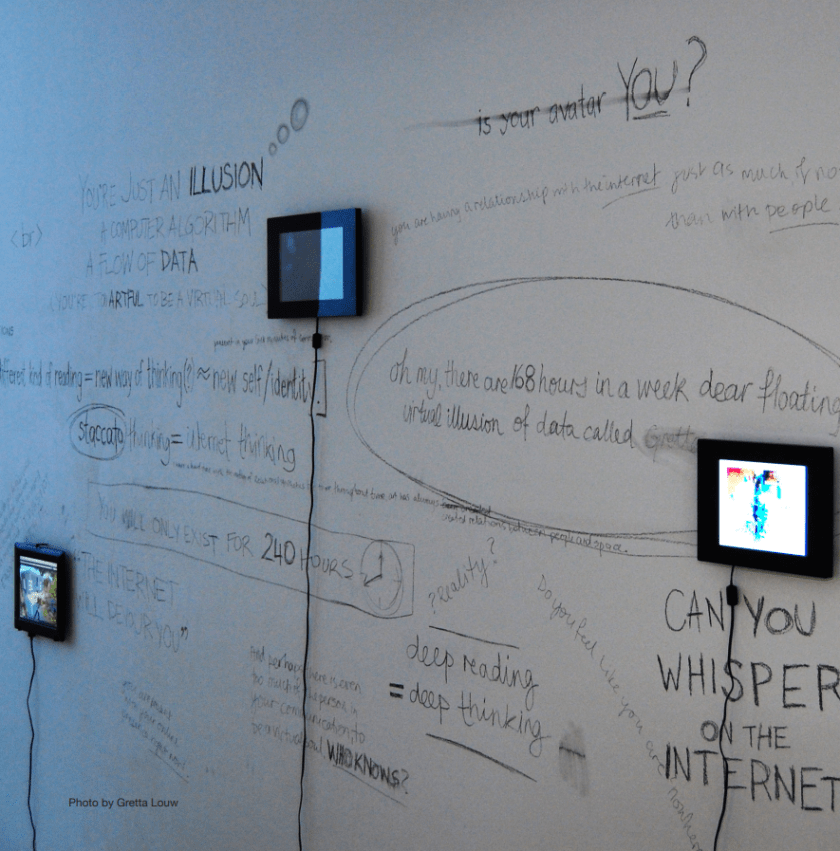 is your avatar YOU?
YOU'RE JUST AN ILLUSION
A COMPUTER ALGORITHM
A FLOW OF DATA
ARTFUL TO BE A VIRTUAL SOUL
<br>
you are having a relationship with the internet just as much, if not
than with people
different kind of reading = new way of thinking(?) ≈ new self/identity
staccato thinking = internet thinking
oh my, there are 168 hours in a week dear floating
virtual illusion of data called Gretta
created relations between people and space.
YOU WILL ONLY EXIST FOR 240 HOURS
"THE INTERNET
WILL DEVOUR YOU"
?reality?
deep reading
= deep thinking
and perhaps there is even
too much of the person in
your communication, to
be a virtual soul. WHO KNOWS?
Do you feel like you are nowhere
CAN YOU
WHISPER
ON THE
INTERNET
Photo by Gretta Louw